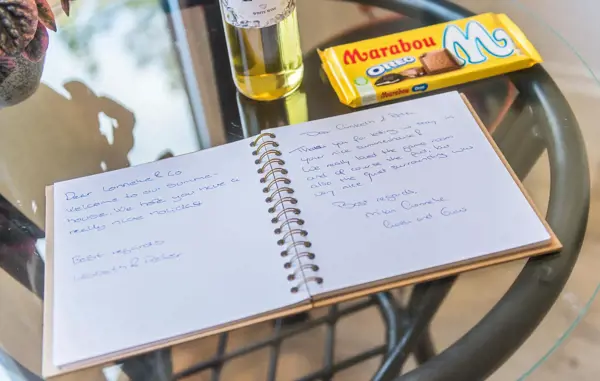 WHITE WINE
Marabou
OREO
M
Marabou
OREO
Dear Lonneke & Co
Welcome to our summer-
house. We hope you have a
really nice holiday!
Best regards
Dear
Thank you for letting us stay in
your nice summerhouse!
We really loved the game room
and of course the
also the quiet surrounding was
very nice.
Best regards,
and